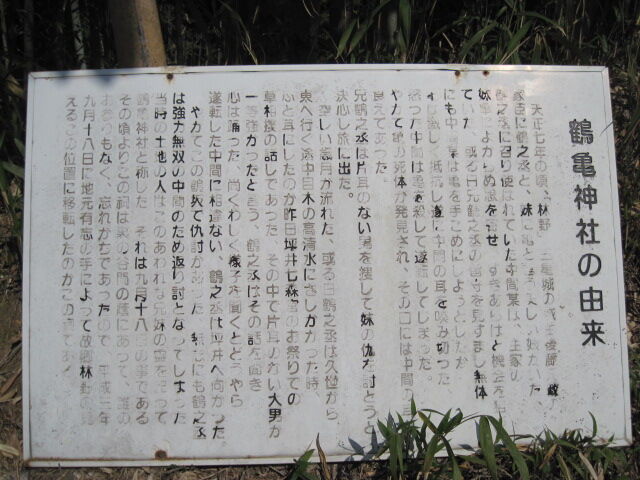 鶴亀神社の由来
天正七年の頃、林野 城の
家臣に鶴之丞と、妹に亀と
鶴之丞に召り使はれていた中間某は、主家の
妹 によからぬ思を寄せ、すきあらばと機会を
ていた、或る日兄鶴之丞の留守を見すまし無体
にも中間某は亀を手ごめにしようとしたが
激しく抵抗し遂に中間の耳を噛み切った
怒った中間は亀を殺して逐転してしまった。
やがて亀の死体が発見され、その口には中間の
食えてあった。
兄鶴之丞は片耳のない男を捜して妹の仇を討とうと
決心し旅に出た。
空しい歳月が流れた、或る日鶴之丞は久世から
東へ行く途中目木の高清水にさしかかった時、
ふと耳にしたのが昨日坪井七森 のお祭りでの
草相撲の話しであった、その中で片耳のない大男が
一等強かったと言う、鶴之丞はその話を聞き
心は踊った、尚くわしく様子を聞くとどうやら
逐転した中間に相違ない、鶴之丞は坪井へ向かった。
やがてこの鶴 で仇討があった、無念にも鶴之丞
は強力無双の中間のため返り討となってしまった
当時の土地の人はこのあわれな兄妹の霊を祀って
鶴亀神社と称した、それは九月十八日の事である
その頃よりこの祠は の谷間の蔭にあって、誰の
お参りもなく、忘れがちであったので、平成 年
九月十八日に地元有志の手によって故郷林野の見
えるこの位置に移転したのがこの である